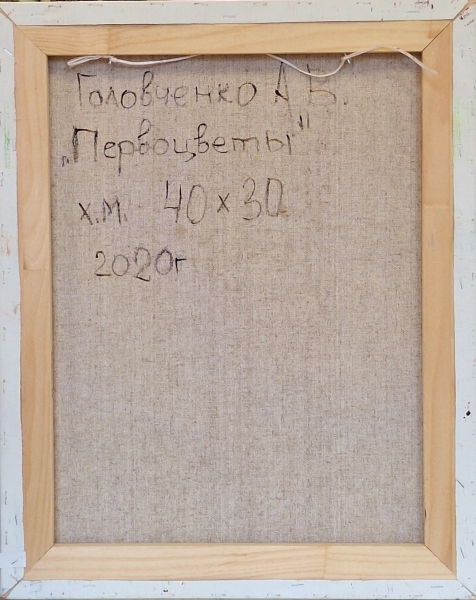 Головченко А В.
„Первоцветы"
х.м. 40 х 30
2020г